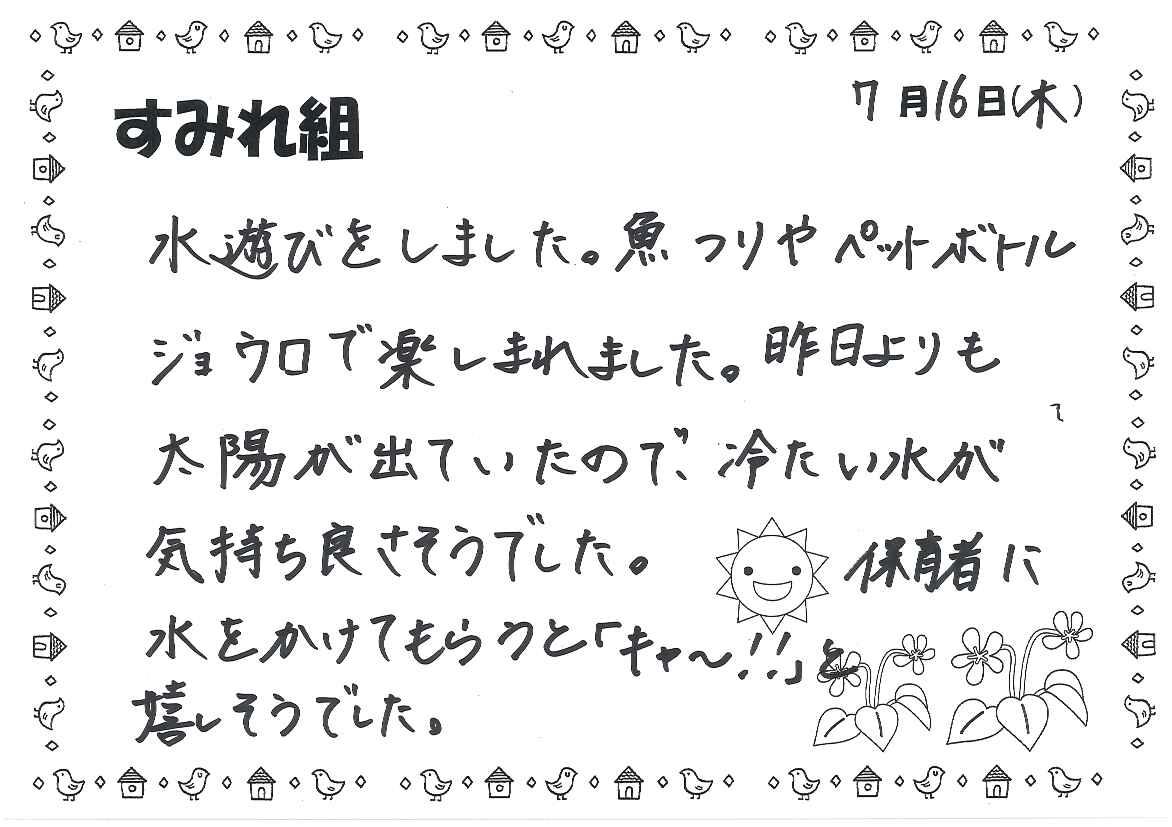 7月16日(木)
すみれ組
水遊びをしました。魚つりやペットボトル
ジョウロで楽しまれました。昨日よりも
太陽が出ていたので、冷たい水が
気持ち良さそうでした。 保育者に
水をかけてもらうと「キャ〜!!」と
嬉しそうでした。